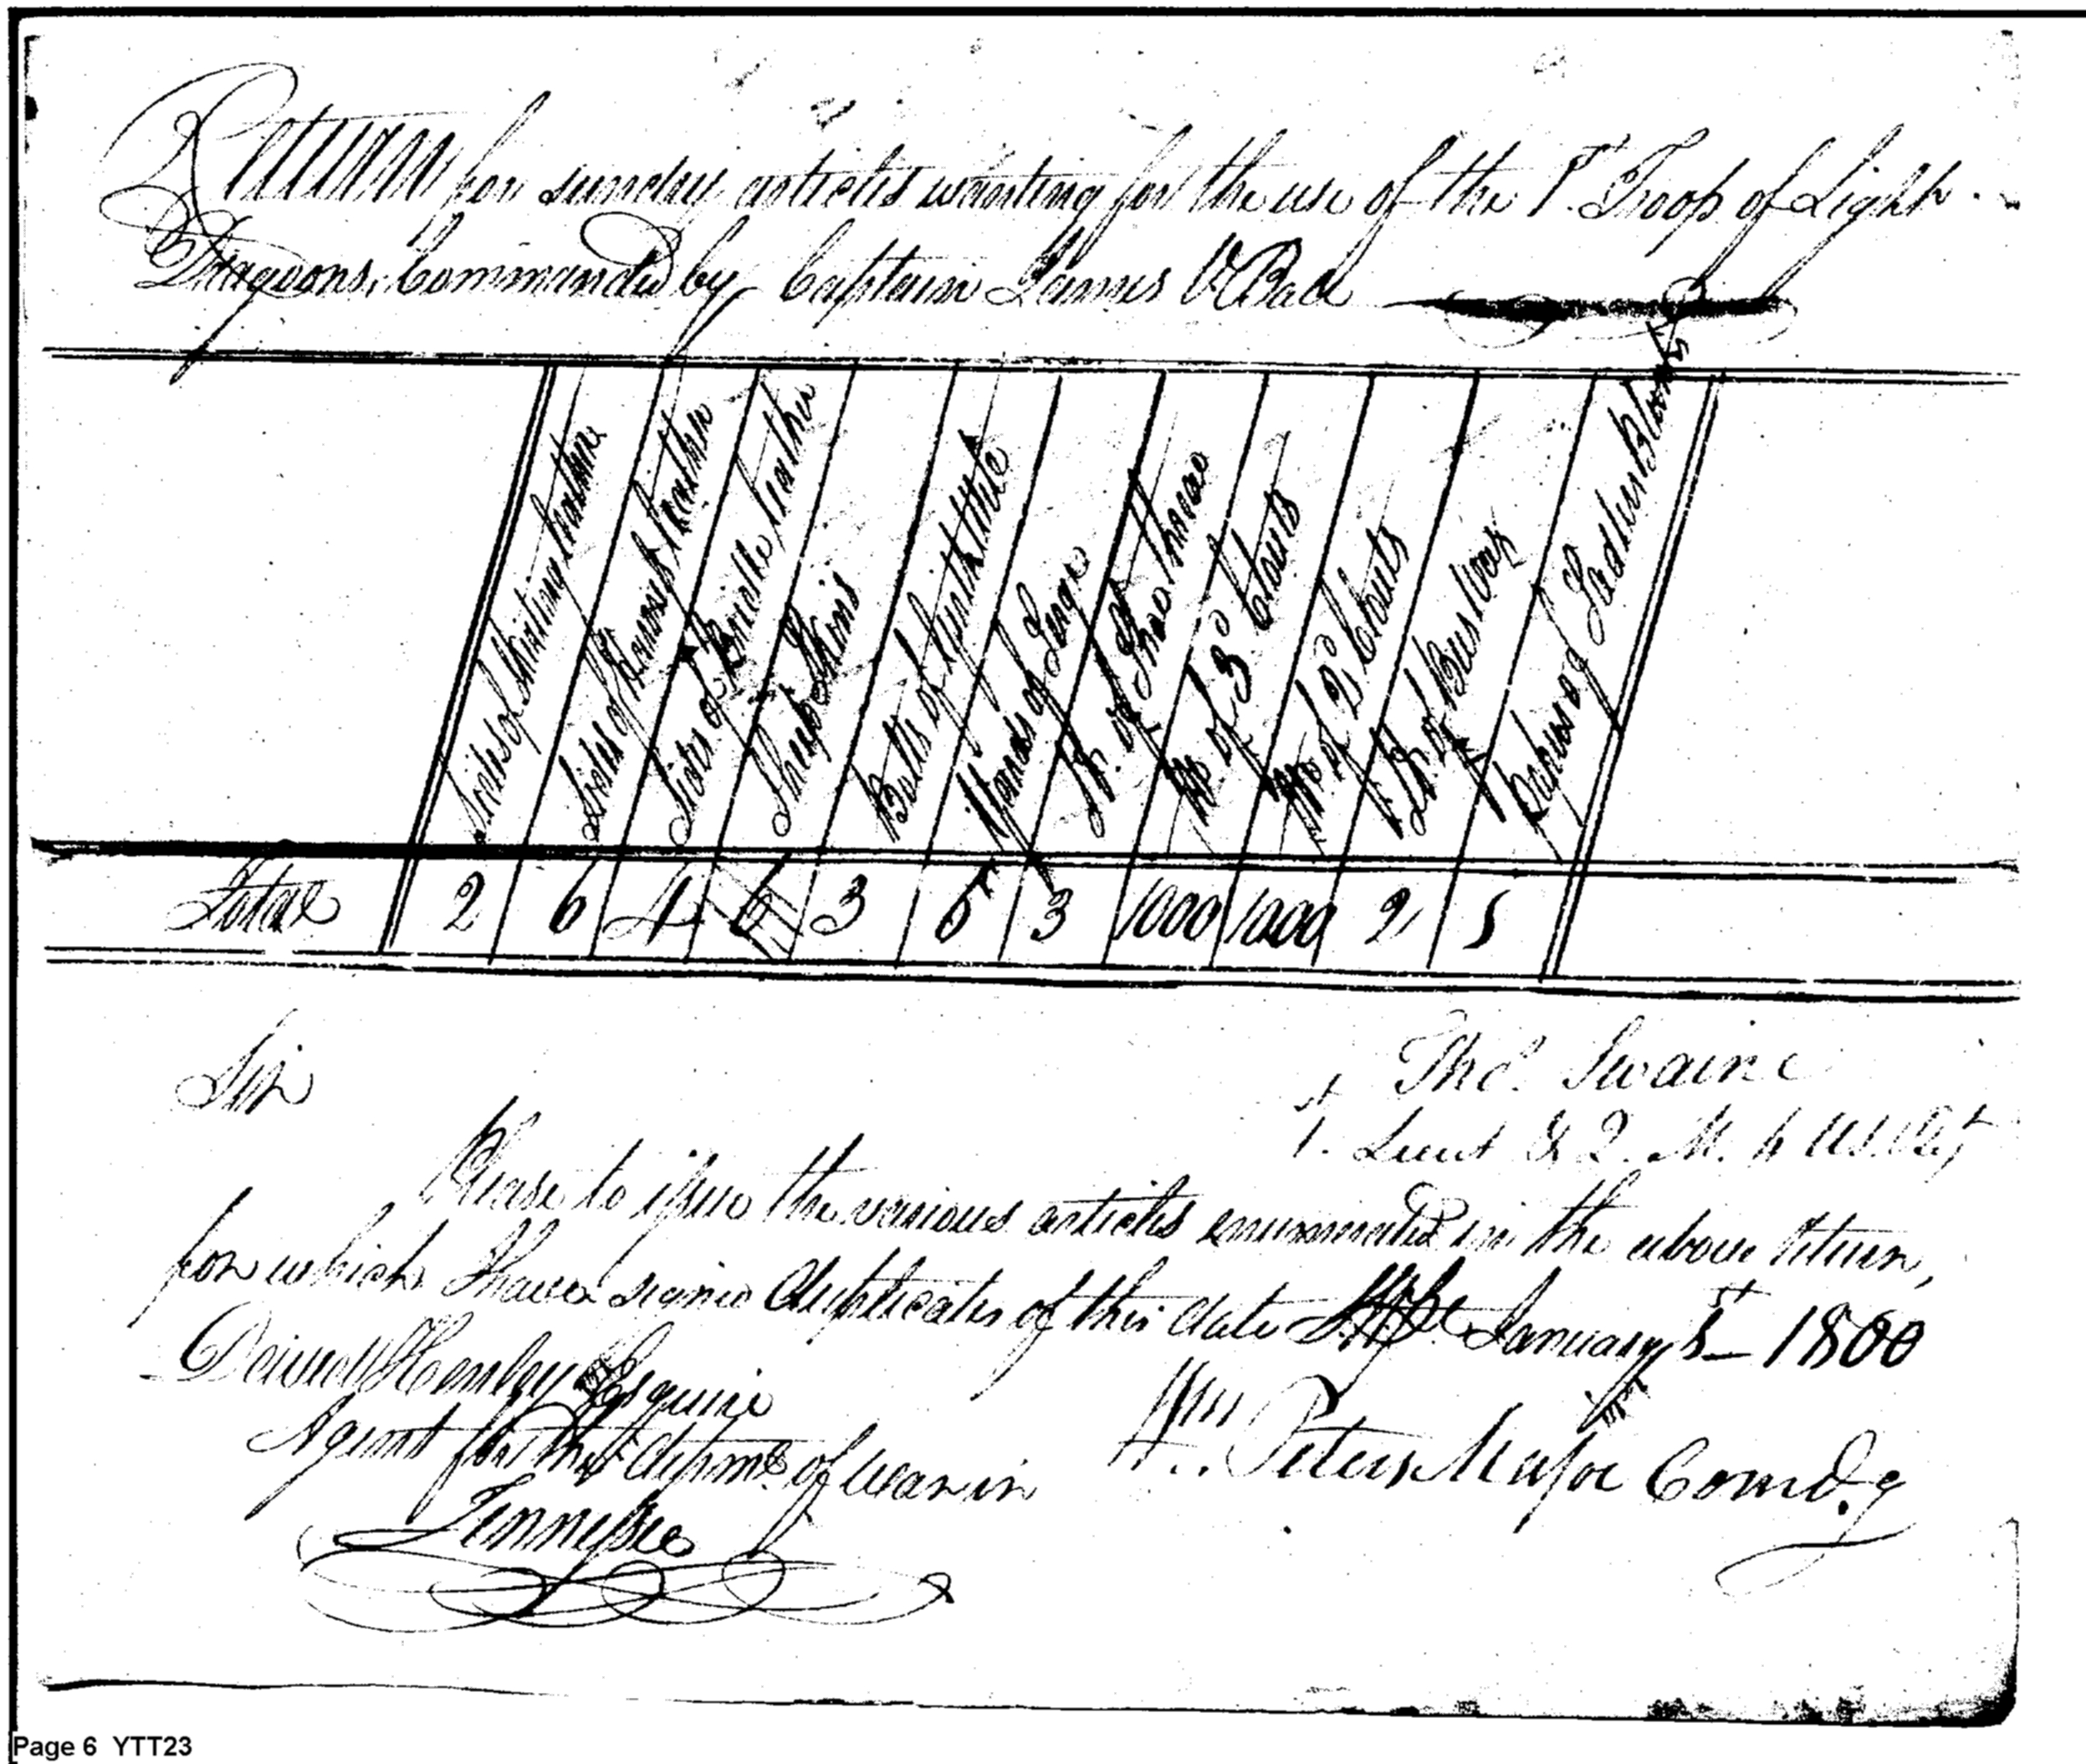 Return for sundry articles wanting for the use of the 1st Troop of Light
Dragoons, Commanded by Captain James V Ball
Sides of Skirting Leather
Sides of Harness Leather
Sides of Bridle Leather
Sheep Skins
Bolts of Girth
Yards of Serge
lb. of Shoe Thread
No. of 3d Clouts
No. of 2d Clouts
lb. of
Papers of Sadlers
Total 2 6 4 6 3 5 3 1000 1000 2
Thos. Swaine
1st. Lieut & Q. M.
Sir
Please to issue the various articles enumerated in the above return,
for which I have signed duplicates of this date January 1st 1800
David Henley Esquire
Wm. Peters Major Comdg
Agent for the departmt. of War in
Tennessee
Page 6 YTT23